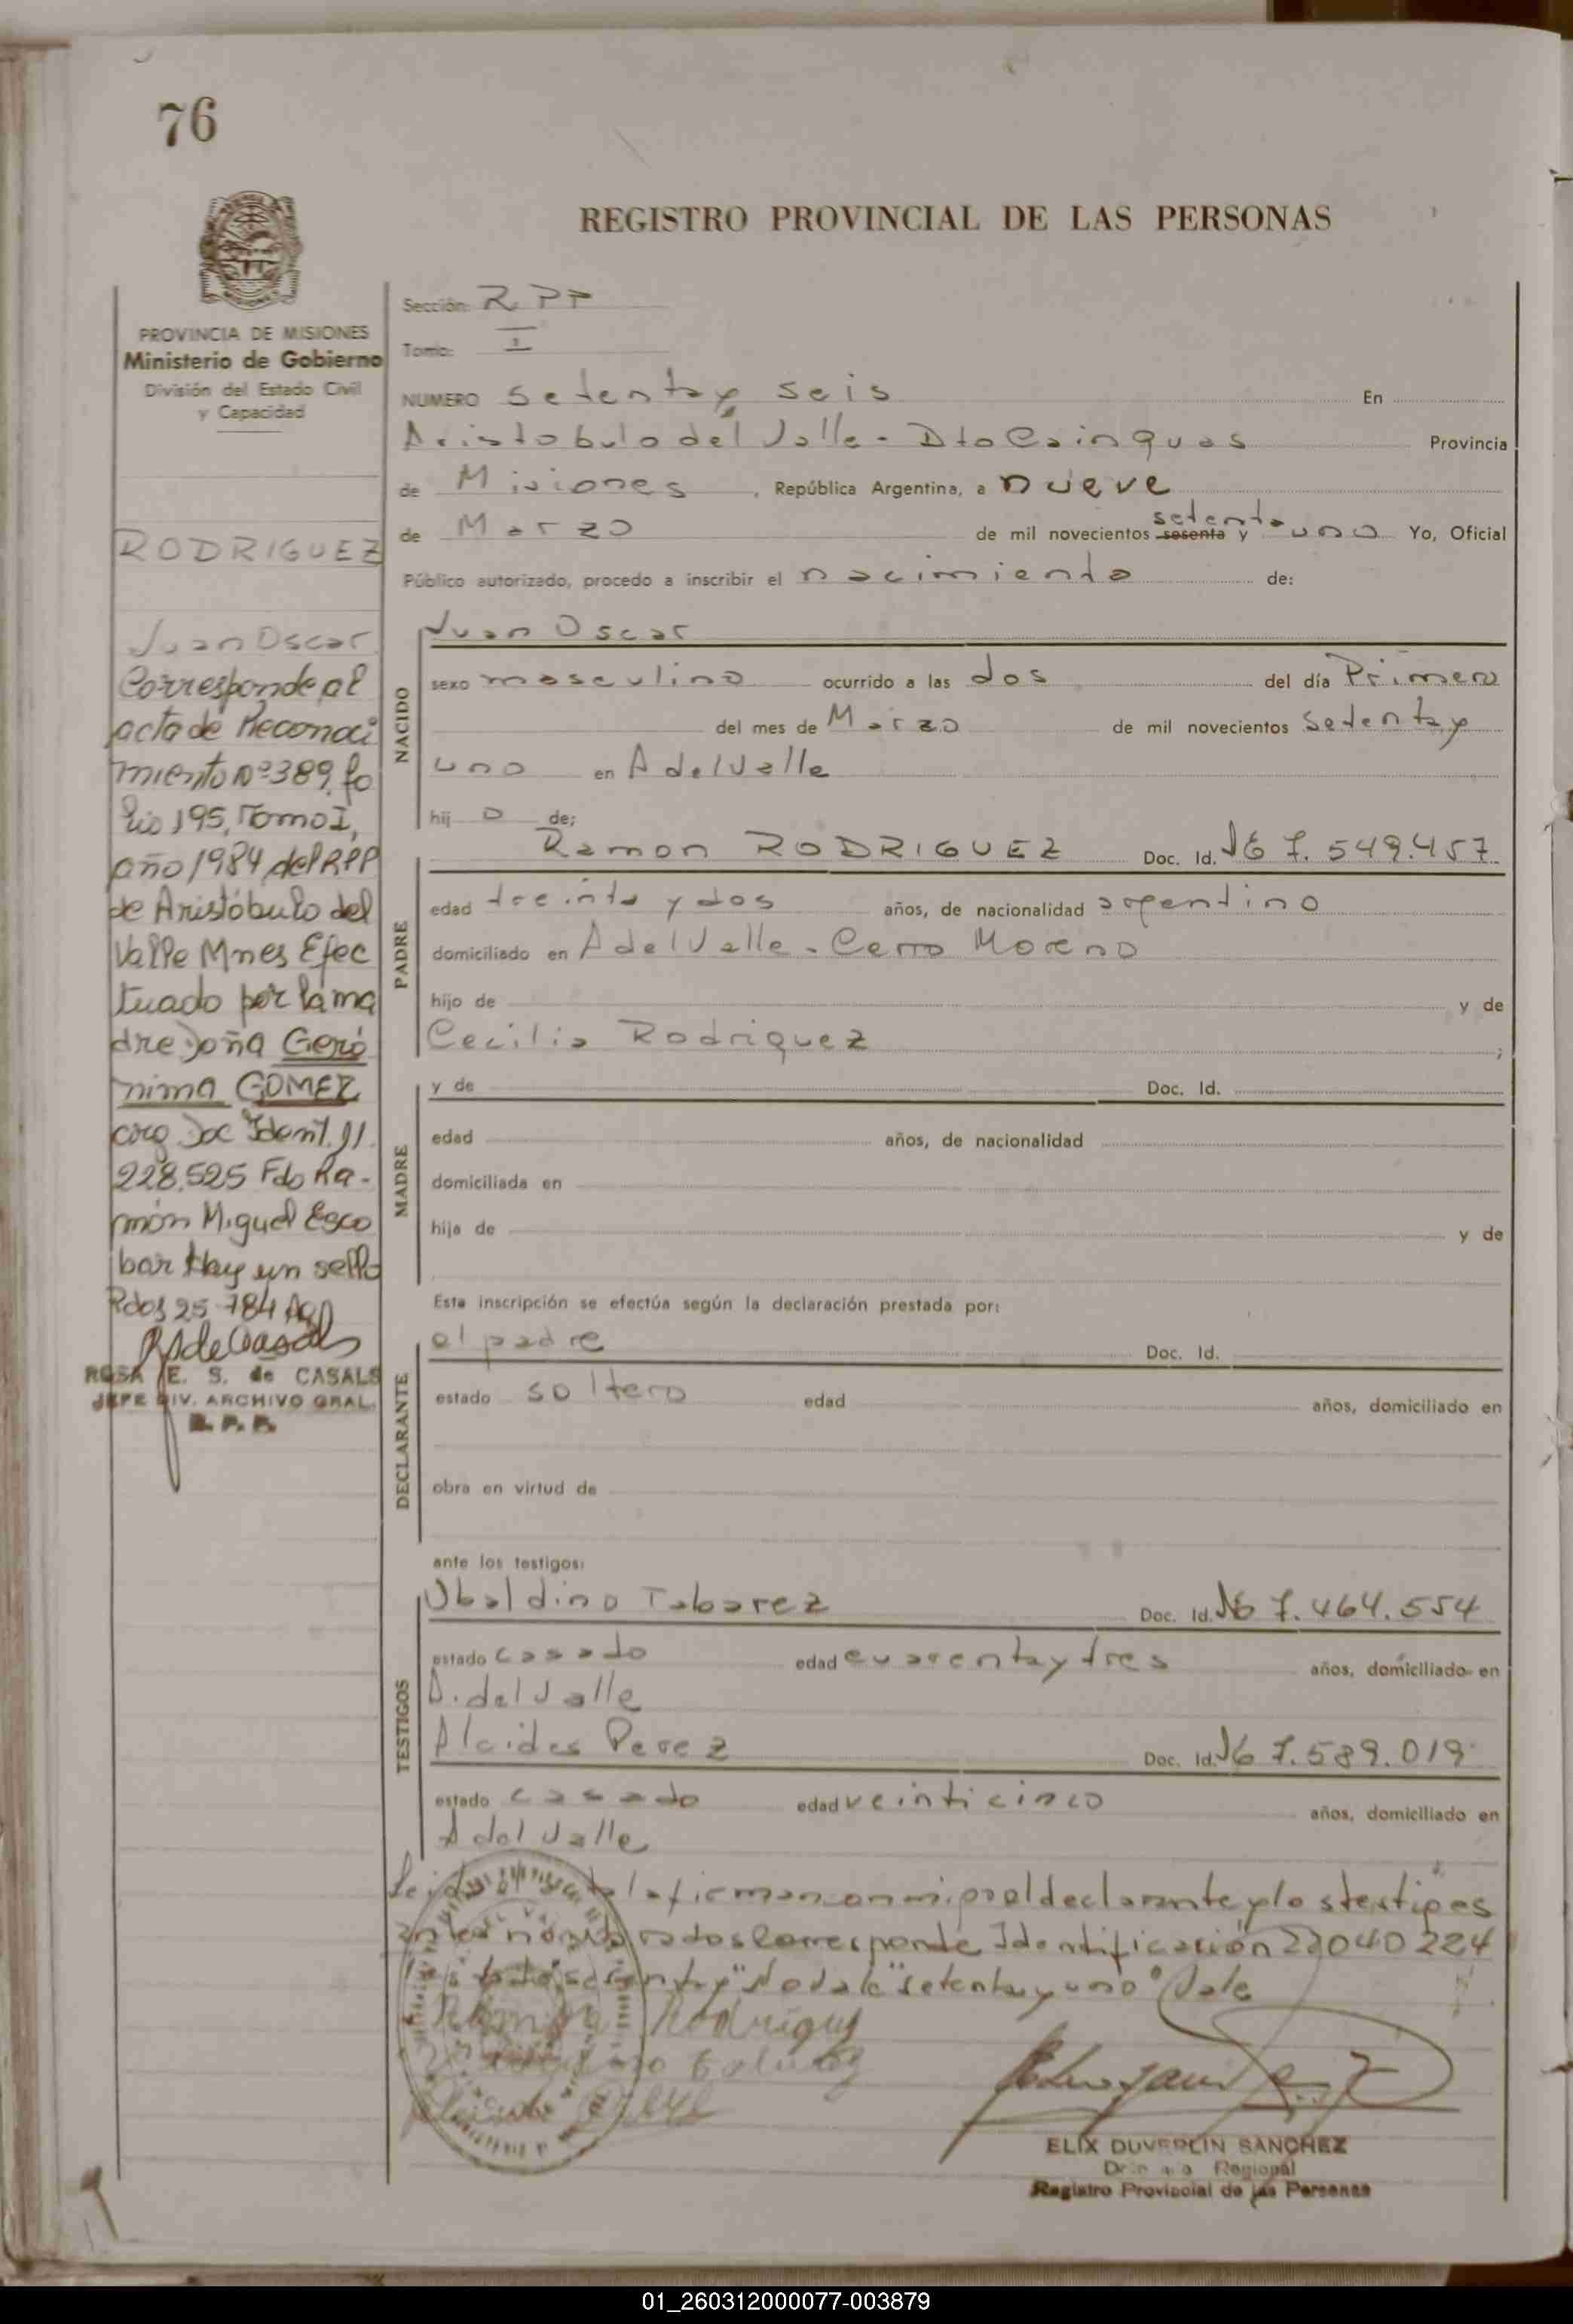 76
REGISTRO PROVINCIAL DE LAS PERSONAS
PROVINCIA DE MISIONES
Ministerio de Gobierno
División del Estado Civil
y Capacidad
RODRIGUEZ
Juan Oscar
Corresponde al
acta de Reconoci
miento Nº 389, fo
lio 195, Tomo I,
año 1984 del RPP
de Aristóbulo del
Valle Mnes Efec
tuado por la ma
dre Doña Geró
nima GOMEZ
arg Doc Ident. 11.
228.525 Fdo Ra-
món Miguel Esco
bar Hay un sello
Pdos 25 784
ROSA E. S. de CASALS
JEFE DIV. ARCHIVO GRAL.
R. P. P.
Sección: R P P
Tomo: I
NUMERO setenta y seis En
Aristobulo del Valle - Dto Cainguas Provincia
de Misiones, República Argentina, a nueve
de Marzo de mil novecientos sesenta y setenta uno Yo, Oficial
Público autorizado, procedo a inscribir el nacimiento de:
NACIDO
Juan Oscar
sexo masculino ocurrido a las dos del día Primero
del mes de Marzo de mil novecientos setenta y
uno en A del Valle
hij o de;
PADRE
Ramon RODRIGUEZ Doc. Id. Nº 7.549.457
edad treinta y dos años, de nacionalidad argentino
domiciliado en A del Valle - Cerro Moreno
hijo de y de
Cecilia Rodriguez ;
MADRE
y de Doc. Id.
edad años, de nacionalidad
domiciliada en
hija de y de
Esta inscripción se efectúa según la declaración prestada por:
DECLARANTE
el padre Doc. Id.
estado soltero edad años, domiciliado en
obra en virtud de
ante los testigos:
TESTIGOS
Ubaldino Tabarez Doc. Id. Nº 7.464.554
estado casado edad cuarenta y tres años, domiciliado en
A. del Valle
Alcides Perez Doc. Id. Nº 7.589.019
estado casado edad veinticinco años, domiciliado en
A del Valle
la firman conmigo el declarante y los testigos
Corresponde Identificación 22040224
"setenta y uno" Vale
Ramon Rodrigues
ELIX DUVERLIN SANCHEZ
Regional
Registro Provincial de las Personas
01_260312000077-003879